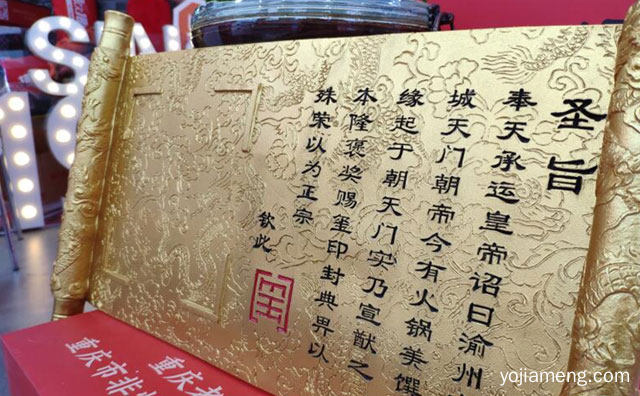 圣旨
奉天承运皇帝诏曰渝州
城天门朝帝今有火锅美馔
缘起于朝天门实乃宣猷之
本隆褒奖赐玺印封典畀以
殊荣以为正宗
钦此
重庆老
重庆市非
yojiameng.com